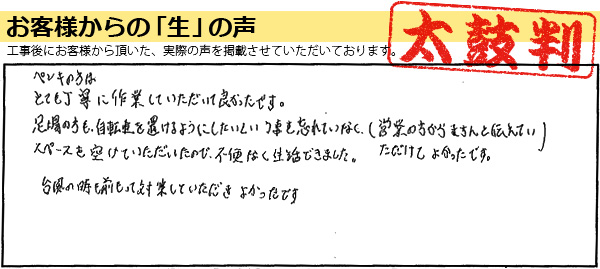 お客様からの「生」の声
工事後にお客様から頂いた、実際の声を掲載させていただいております。
太鼓判
ペンキの方は
とても丁寧に作業していただいて良かったです。
足場の方も、自転車を置けるようにしたいという事も忘れていなく、(営業の方がきちんと伝えてい
スペースも空けていただいたので、不便なく生活できました。 ただけてよかったです。)
台風の時も前もって対策していただきよかったです